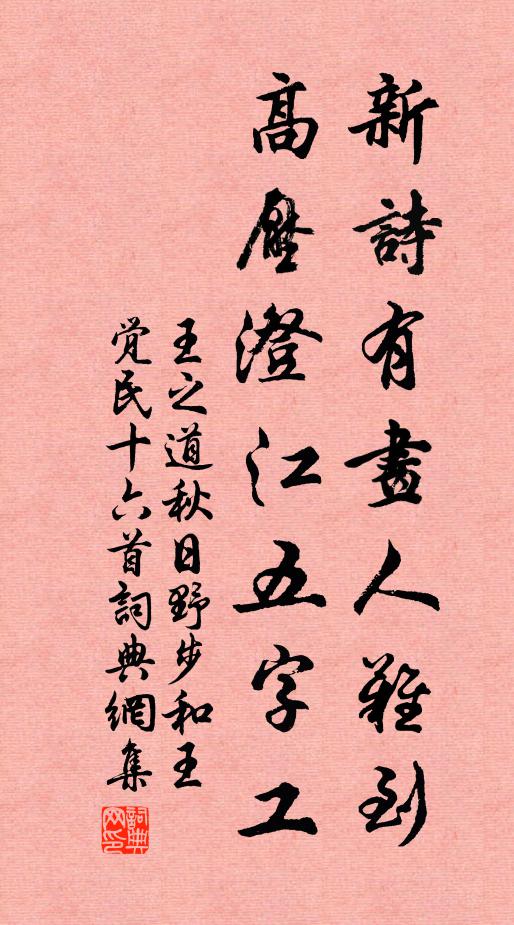 新詩有畫人難到
高壓澄江五字工
王之道秋日野步和王
覚民十六首詞典網集
詞典网印